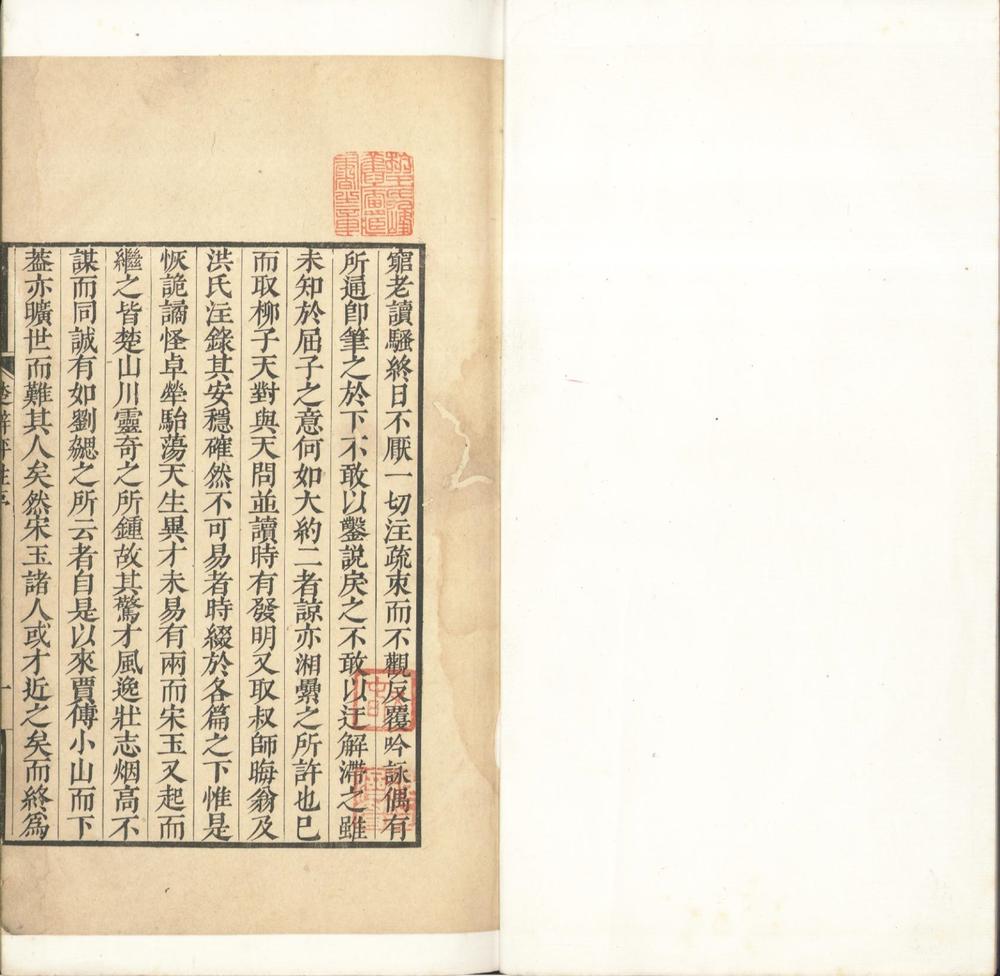 窮老讀騷終日不厭一切注疏束而不觀反覆吟詠偶有
所通卽筆之於下不敢以鑿說戾之不敢以迂解滯之雖
未知於屈子之意何如大約二者諒亦湘纍之所許也已
而取柳子天對與天問並讀時有發明又取叔師晦翁及
洪氏注錄其安穩確然不可易者時綴於各篇之下惟是
恢詭譎怪卓犖駘蕩天生異才未易有兩而宋玉又起而
繼之皆楚山川靈奇之所鍾故其驚才風逸壯志烟高不
謀而同誠有如劉勰之所云者自是以來賈傅小山而下
葢亦曠世而難其人矣然宋玉諸人或才近之矣而終爲
楚辭評註序
一